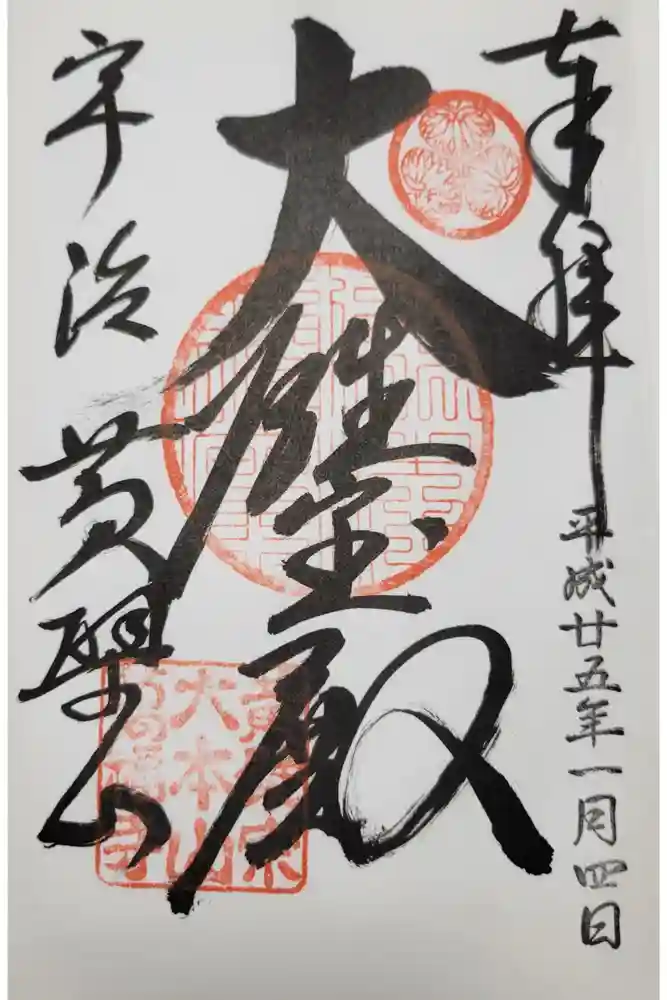 奉拝
平成廿五年一月四日
大雄宝殿
宇治 黄檗山
黄檗宗
大本山
萬福寺